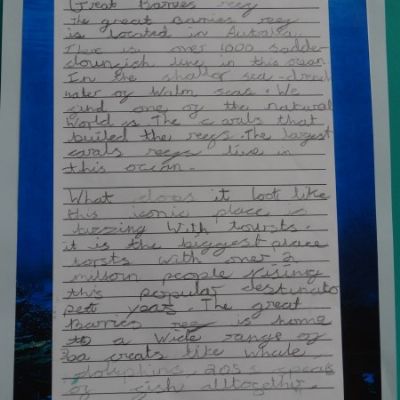 Great Barries reey
The great Barries reey
is located in Autralia.
There is over 1000
live in this ocean
In the shallor sea
water oy Walm seas. We
gind one oy the natural
World s The corals that
builed the reegs. The largest
corals reegs live in
this ocean.
What does it look like
this iconic place is
buzzing With toursts.
it is the biggest place
torsts with over 2
millson people
this popular destinato
pet year. The great
Barries reey is home
to a wide range oy
creats like Whale
dolephins, 205
oy gish alltogether.